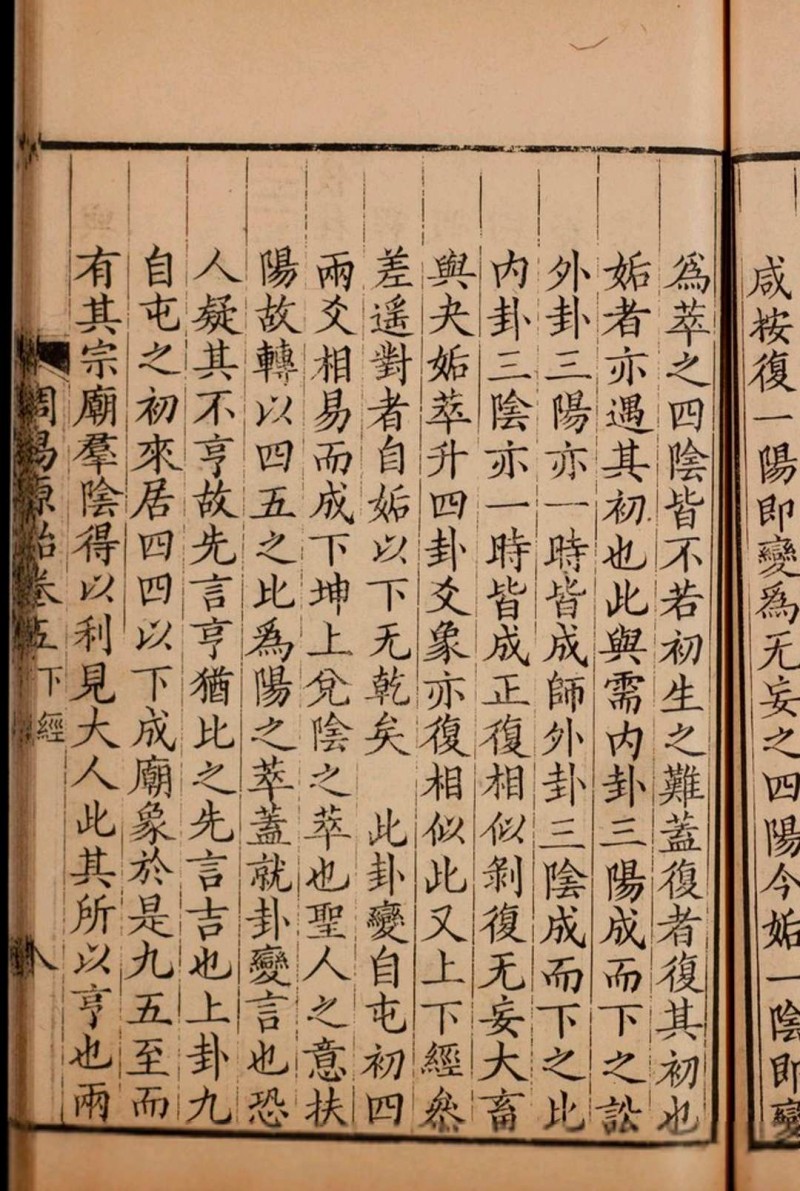 咸按復一陽即變爲无妄之四陽今姤一陰即變
爲萃之四陰皆不若初生之難蓋復者復其初也
姤者亦遇其初也此與需内卦三陽成而下之訟
外卦三陽亦一時皆成師外卦三陰成而下之比
内卦三陰亦一時皆成正復相似剝復无妄大畜
與夬姤萃升四卦爻象亦復相似此又上下經叅
差遙對者自姤以下无乾矣　此卦變自屯初四
兩爻相易而成下坤上兌陰之萃也聖人之意扶
陽故轉以四五之比爲陽之萃蓋就卦變言也恐
人疑其不亨故先言亨猶比之先言吉也上卦九
自屯之初來居四四以下成廟象於是九五至而
有其宗廟羣陰得以利見大人此其所以亨也兩
周易原始卷五 下經 八